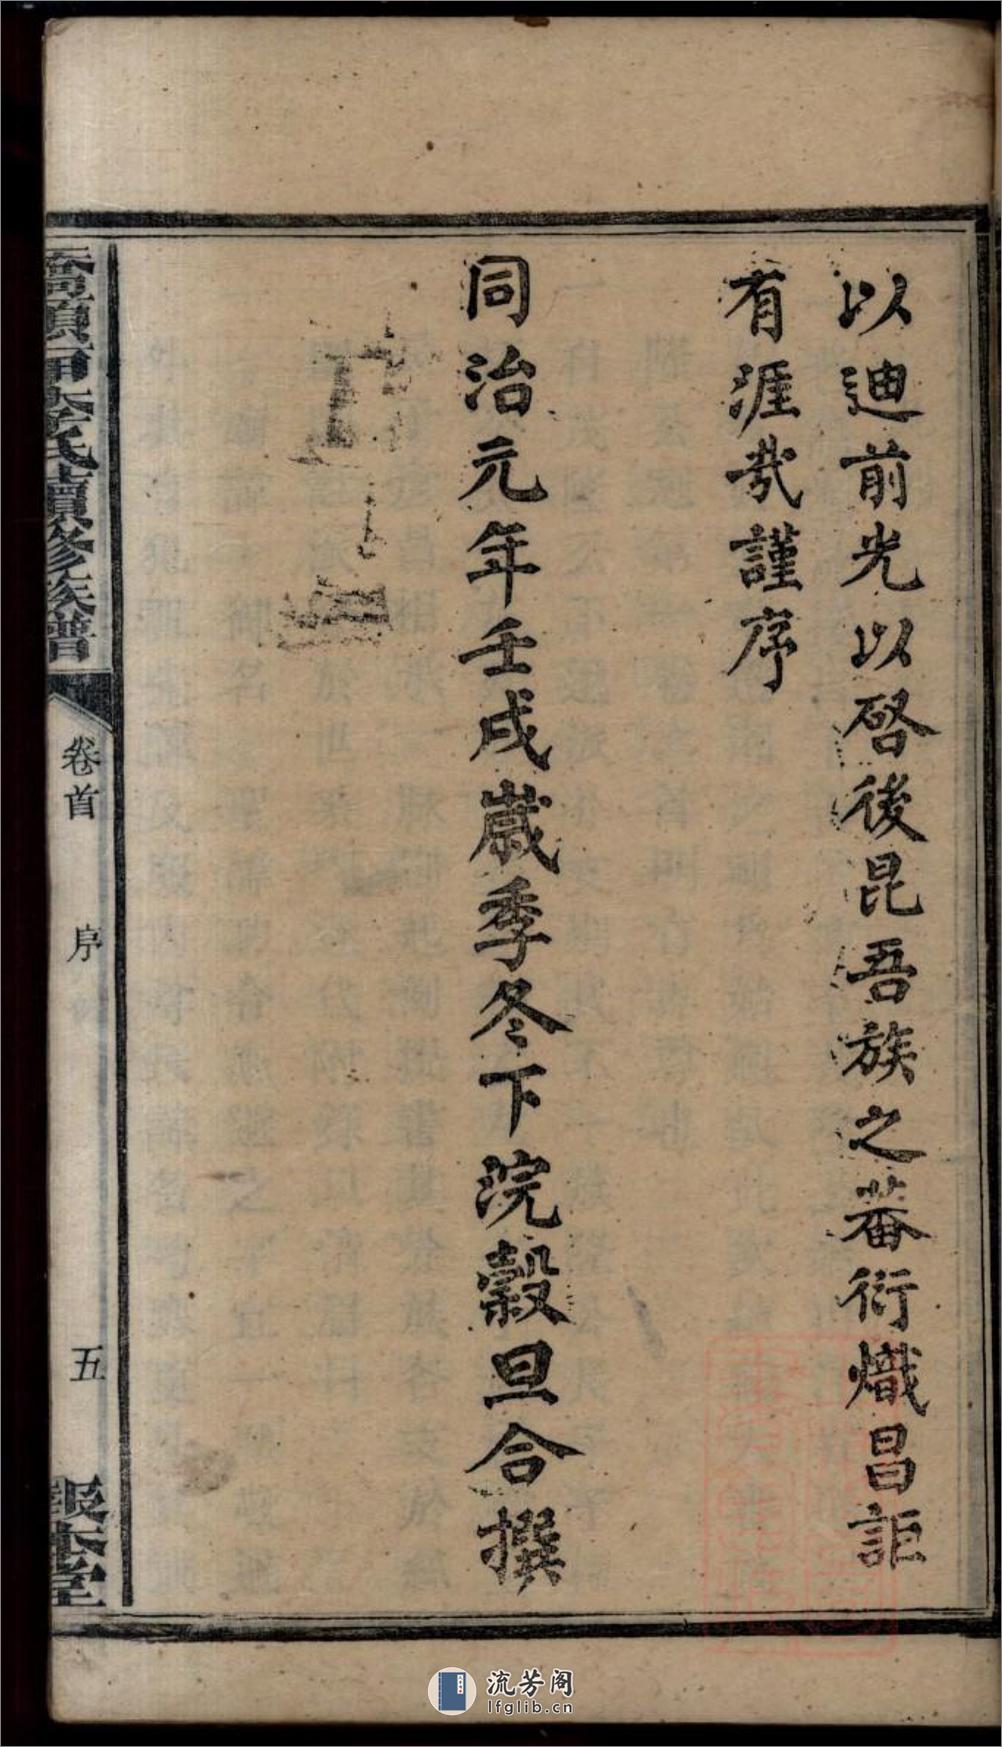 以迪前光以啓後昆吾族之蕃衍熾昌詎
有涯哉謹序
同治元年壬戌歲季冬下浣穀旦合撰
李氏續修族譜
卷首
序
五
報本堂
流芳阁
lfglib.cn